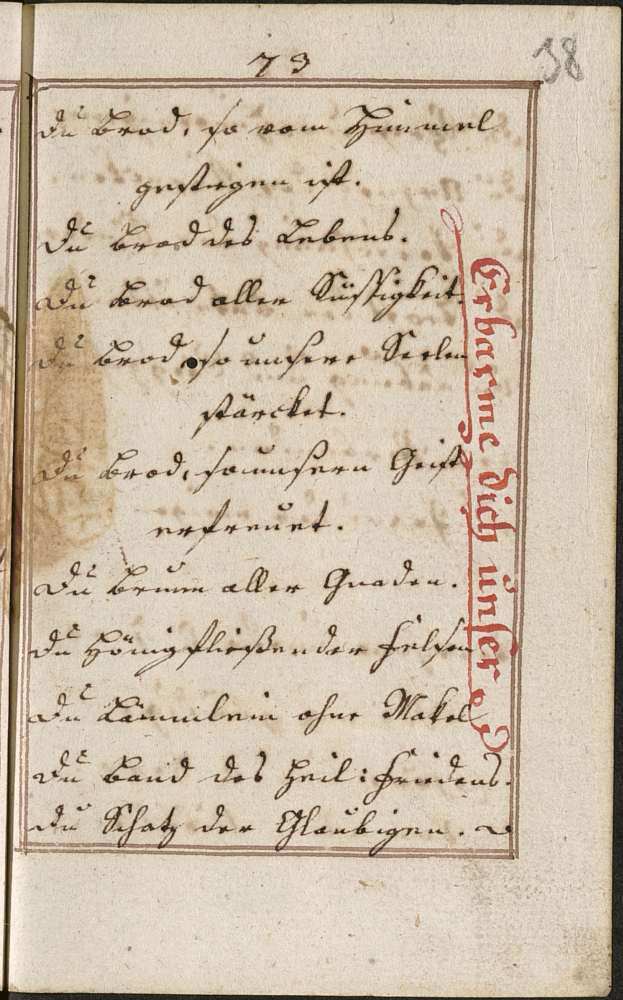 73
38
Du Brod, so vom Himmel
gestiegen ist.
Du Brod des Lebens.
Du Brod aller Süssigkeit.
Du Brod, so unsere Seelen
stärcket.
Du Brod, so unsern Geist
erfreuet.
Du Brunn aller Gnaden.
Du Hönigfließender Felsen
Du Lämmlein ohne Makel
Du Band des Heil: Friedens.
Du Schatz der Glaubigen.
Erbarme dich unser